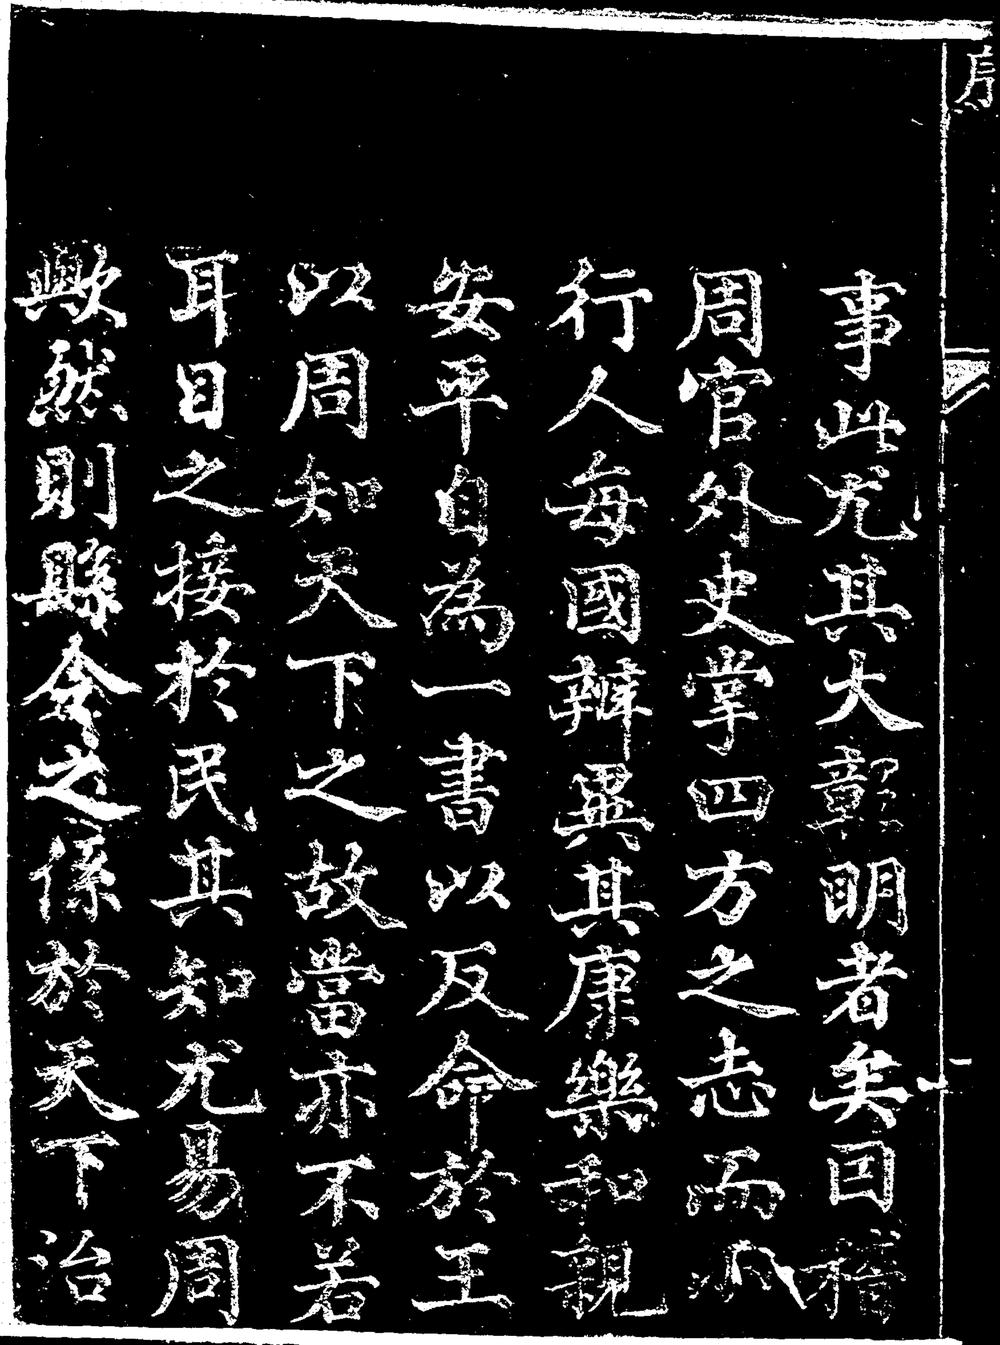 序
事此尤其大彰明者矣因稽
周官外史掌四方之志而小
行人每國辨異其康樂和親
安平自為一書以反命於王
以周知天下之故當亦不若
耳目之接於民其知尤易周
歟然則縣令之係於天下治